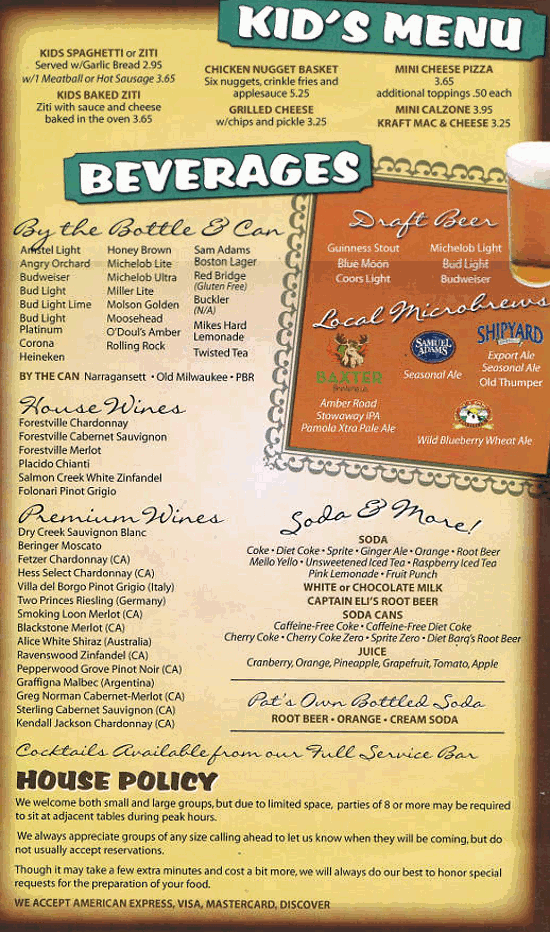 KID'S MENU
KIDS SPAGHETTI or ZITI
Served w/Garlic Bread 2.95
w/1 Meatball or Hot Sausage 3.65
KIDS BAKED ZITI
Ziti with sauce and cheese
baked in the oven 3.65
CHICKEN NUGGET BASKET
Six nuggets, crinkle fries and
applesauce 5.25
GRILLED CHEESE
w/chips and pickle 3.25
MINI CHEESE PIZZA
3.65
additional toppings .50 each
MINI CALZONE 3.95
KRAFT MAC & CHEESE 3.25
BEVERAGES
By the Bottle & Can
Amstel Light
Angry Orchard
Budweiser
Bud Light
Bud Light Lime
Bud Light
Platinum
Corona
Heineken
Honey Brown
Michelob Lite
Michelob Ultra
Miller Lite
Molson Golden
Moosehead
O'Doul's Amber
Rolling Rock
Sam Adams
Boston Lager
Red Bridge
(Gluten Free)
Buckler
(N/A)
Mikes Hard
Lemonade
Twisted Tea
BY THE CAN Narragansett • Old Milwaukee • PBR
Draft Beer
Guinness Stout
Blue Moon
Coors Light
Michelob Light
Bud Light
Budweiser
Local Microbrews
BAXTER
BREWING CO.
Amber Road
Stowaway IPA
Pamola Xtra Pale Ale
SAMUEL
ADAMS
Seasonal Ale
SHIPYARD
Export Ale
Seasonal Ale
Old Thumper
Wild Blueberry Wheat Ale
House Wines
Forestville Chardonnay
Forestville Cabernet Sauvignon
Forestville Merlot
Placido Chianti
Salmon Creek White Zinfandel
Folonari Pinot Grigio
Premium Wines
Dry Creek Sauvignon Blanc
Beringer Moscato
Fetzer Chardonnay (CA)
Hess Select Chardonnay (CA)
Villa del Borgo Pinot Grigio (Italy)
Two Princes Riesling (Germany)
Smoking Loon Merlot (CA)
Blackstone Merlot (CA)
Alice White Shiraz (Australia)
Ravenswood Zinfandel (CA)
Pepperwood Grove Pinot Noir (CA)
Graffigna Malbec (Argentina)
Greg Norman Cabernet-Merlot (CA)
Sterling Cabernet Sauvignon (CA)
Kendall Jackson Chardonnay (CA)
Soda & More!
SODA
Coke • Diet Coke • Sprite • Ginger Ale • Orange • Root Beer
Mello Yello • Unsweetened Iced Tea • Raspberry Iced Tea
Pink Lemonade • Fruit Punch
WHITE or CHOCOLATE MILK
CAPTAIN ELI'S ROOT BEER
SODA CANS
Caffeine-Free Coke • Caffeine-Free Diet Coke
Cherry Coke • Cherry Coke Zero • Sprite Zero • Diet Barq's Root Beer
JUICE
Cranberry, Orange, Pineapple, Grapefruit, Tomato, Apple
Pat's Own Bottled Soda
ROOT BEER • ORANGE • CREAM SODA
Cocktails Available from our Full Service Bar
HOUSE POLICY
We welcome both small and large groups, but due to limited space, parties of 8 or more may be required
to sit at adjacent tables during peak hours.
We always appreciate groups of any size calling ahead to let us know when they will be coming, but do
not usually accept reservations.
Though it may take a few extra minutes and cost a bit more, we will always do our best to honor special
requests for the preparation of your food.
WE ACCEPT AMERICAN EXPRESS, VISA, MASTERCARD, DISCOVER